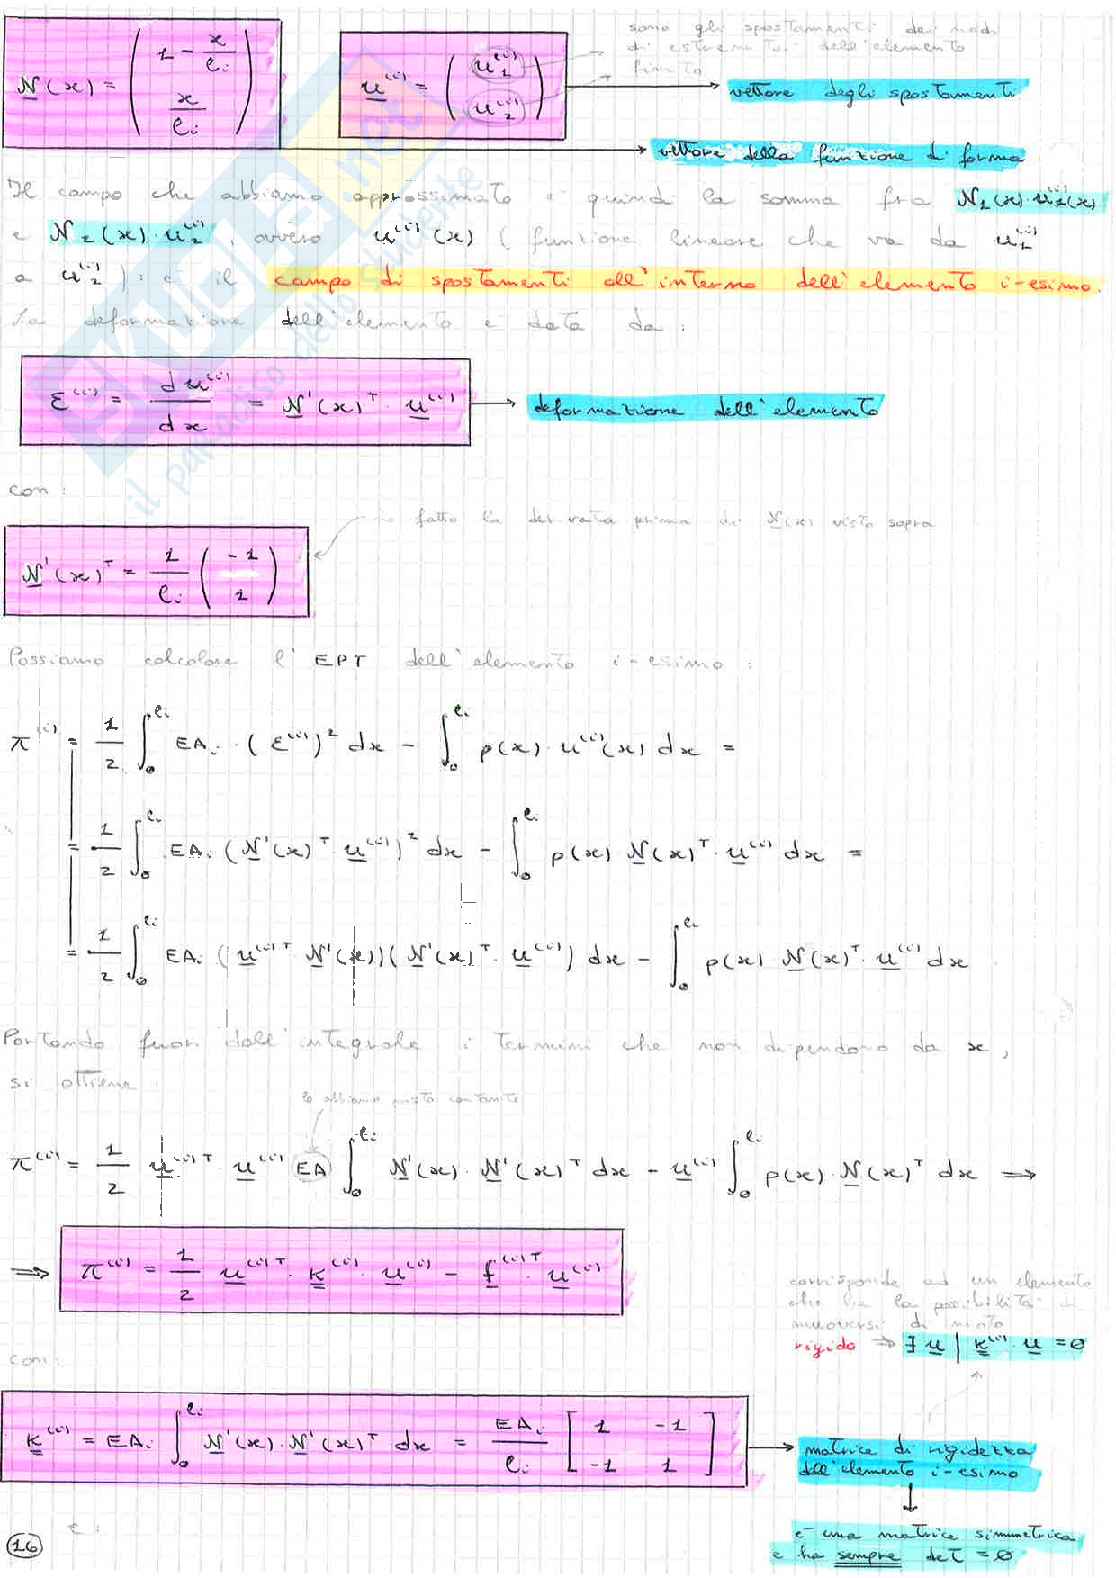 N(x) = ( 1 - x/ℓi ; x/ℓi )
u⁽ⁱ⁾ = ( u₁⁽ⁱ⁾ ; u₂⁽ⁱ⁾ )
sono gli spostamenti dei nodi
di estremità dell'elemento
finito
vettore degli spostamenti
vettore della funzione di forma
Il campo che abbiamo approssimato è quindi la somma fra N₁(x)·u₁⁽ⁱ⁾(x)
e N₂(x)·u₂⁽ⁱ⁾, ovvero u⁽ⁱ⁾(x) (funzione lineare che va da u₁⁽ⁱ⁾
a u₂⁽ⁱ⁾): è il campo di spostamenti all'interno dell'elemento i-esimo.
La deformazione dell'elemento è data da:
ε⁽ⁱ⁾ = du⁽ⁱ⁾/dx = N'(x)ᵀ · u⁽ⁱ⁾ → deformazione dell'elemento
con:
N'(x)ᵀ = 1/ℓi ( -1 ; 1 )
ho fatto la derivata prima di N(x) visto sopra
Possiamo calcolare l'EPT dell'elemento i-esimo:
π⁽ⁱ⁾ = 1/2 ∫₀^ℓi EAi · (ε⁽ⁱ⁾)² dx - ∫₀^ℓi p(x) · u⁽ⁱ⁾(x) dx =
= 1/2 ∫₀^ℓi EAi (N'(x)ᵀ · u⁽ⁱ⁾)² dx - ∫₀^ℓi p(x) N(x)ᵀ · u⁽ⁱ⁾ dx =
= 1/2 ∫₀^ℓi EAi (u⁽ⁱ⁾ᵀ · N'(x)) (N'(x)ᵀ · u⁽ⁱ⁾) dx - ∫₀^ℓi p(x) N(x)ᵀ · u⁽ⁱ⁾ dx
Portando fuori dall'integrale i termini che non dipendono da x,
si ottiene
lo abbiamo posto costante
π⁽ⁱ⁾ = 1/2 u⁽ⁱ⁾ᵀ · u⁽ⁱ⁾ EA ∫₀^ℓi N'(x) · N'(x)ᵀ dx - u⁽ⁱ⁾ ∫₀^ℓi p(x) · N(x)ᵀ dx ⇒
⇒ π⁽ⁱ⁾ = 1/2 u⁽ⁱ⁾ᵀ · k⁽ⁱ⁾ · u⁽ⁱ⁾ - f⁽ⁱ⁾ᵀ · u⁽ⁱ⁾
corrisponde ad un elemento
che ha la possibilità di
muoversi di moto
rigido ⇒ ∃ u | k⁽ⁱ⁾ · u = 0
con:
k⁽ⁱ⁾ = EAi ∫₀^ℓi N'(x) · N'(x)ᵀ dx = EAi/ℓi [ 1 -1 ; -1 1 ]
→ matrice di rigidezza
dell'elemento i-esimo
è una matrice simmetrica
e ha sempre det = 0
e:
16
il paradiso dello studente